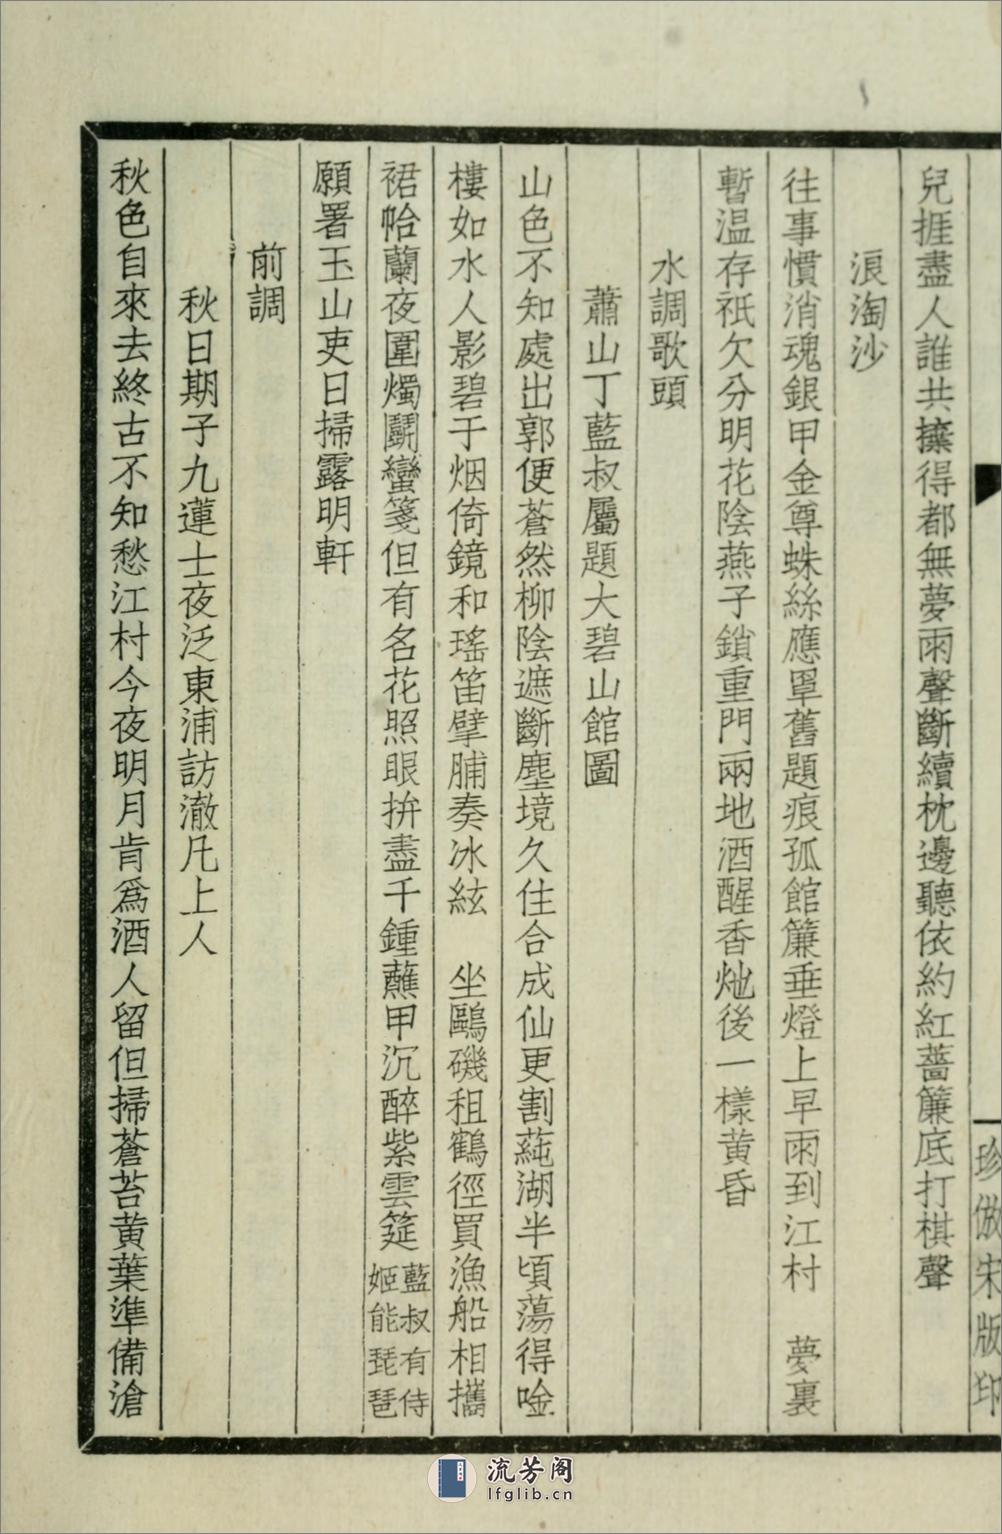 兒捱盡人誰共擁得都無夢雨聲斷續枕邊聽依約紅薔簾底打棋聲
浪淘沙
往事慣消魂銀甲金尊蛛絲應罩舊題痕孤館簾垂燈上早雨到江村　夢裏
暫温存祇欠分明花陰燕子鎖重門兩地酒醒香灺後一樣黄昏
水調歌頭
蕭山丁藍叔屬題大碧山館圖
山色不知處出郭便蒼然柳陰遮斷塵境久住合成仙更割蒓湖半頃蕩得唫
樓如水人影碧于烟倚鏡和瑤笛擘脯奏冰絃　坐鷗磯租鶴徑買漁船相攜
裙帢蘭夜圍燭鬭蠻箋但有名花照眼拚盡千鍾蘸甲沉醉紫雲筵藍叔有侍姬能琵琶
願署玉山吏日掃露明軒
前調
秋日期子九蓮士夜泛東浦訪澈凡上人
秋色自來去終古不知愁江村今夜明月肯爲酒人留但掃蒼苔黄葉準備滄
珍倣宋版印
流芳阁
lfglib.cn